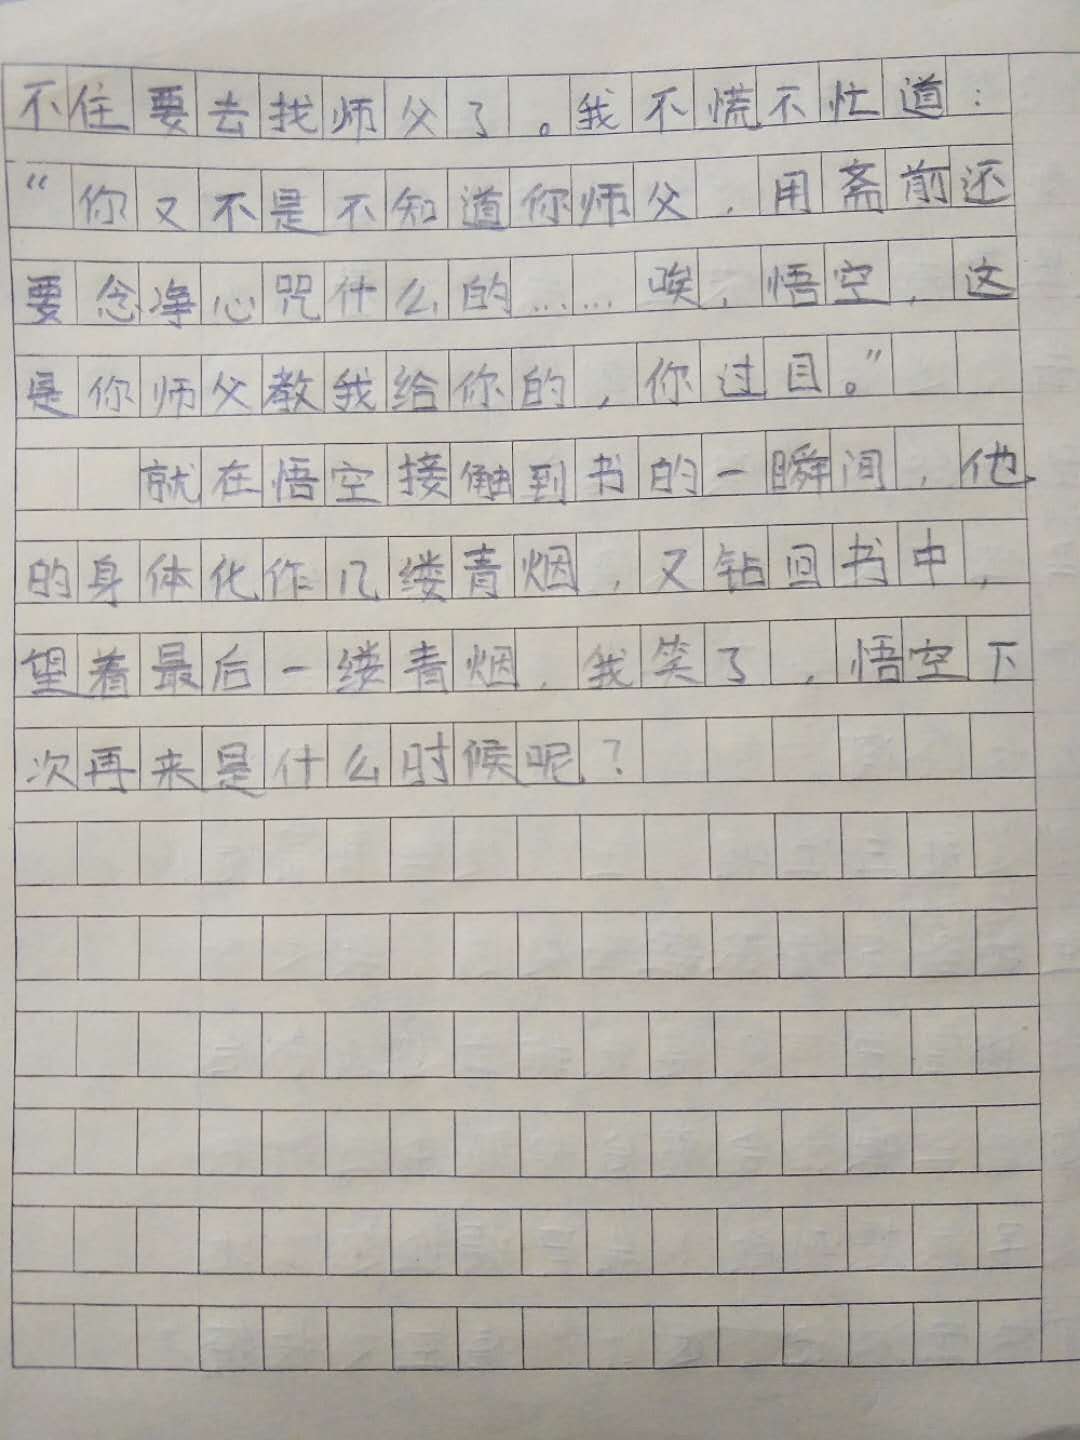 不住要去找师父了。我不慌不忙道：
“你又不是不知道你师父，用斋前还
要念净心咒什么的……唉，悟空，这
是你师父教我给你的，你过目。”
就在悟空接触到书的一瞬间，他
的身体化作几缕青烟，又钻回书中，
望着最后一缕青烟，我笑了，悟空下
次再来是什么时候呢？